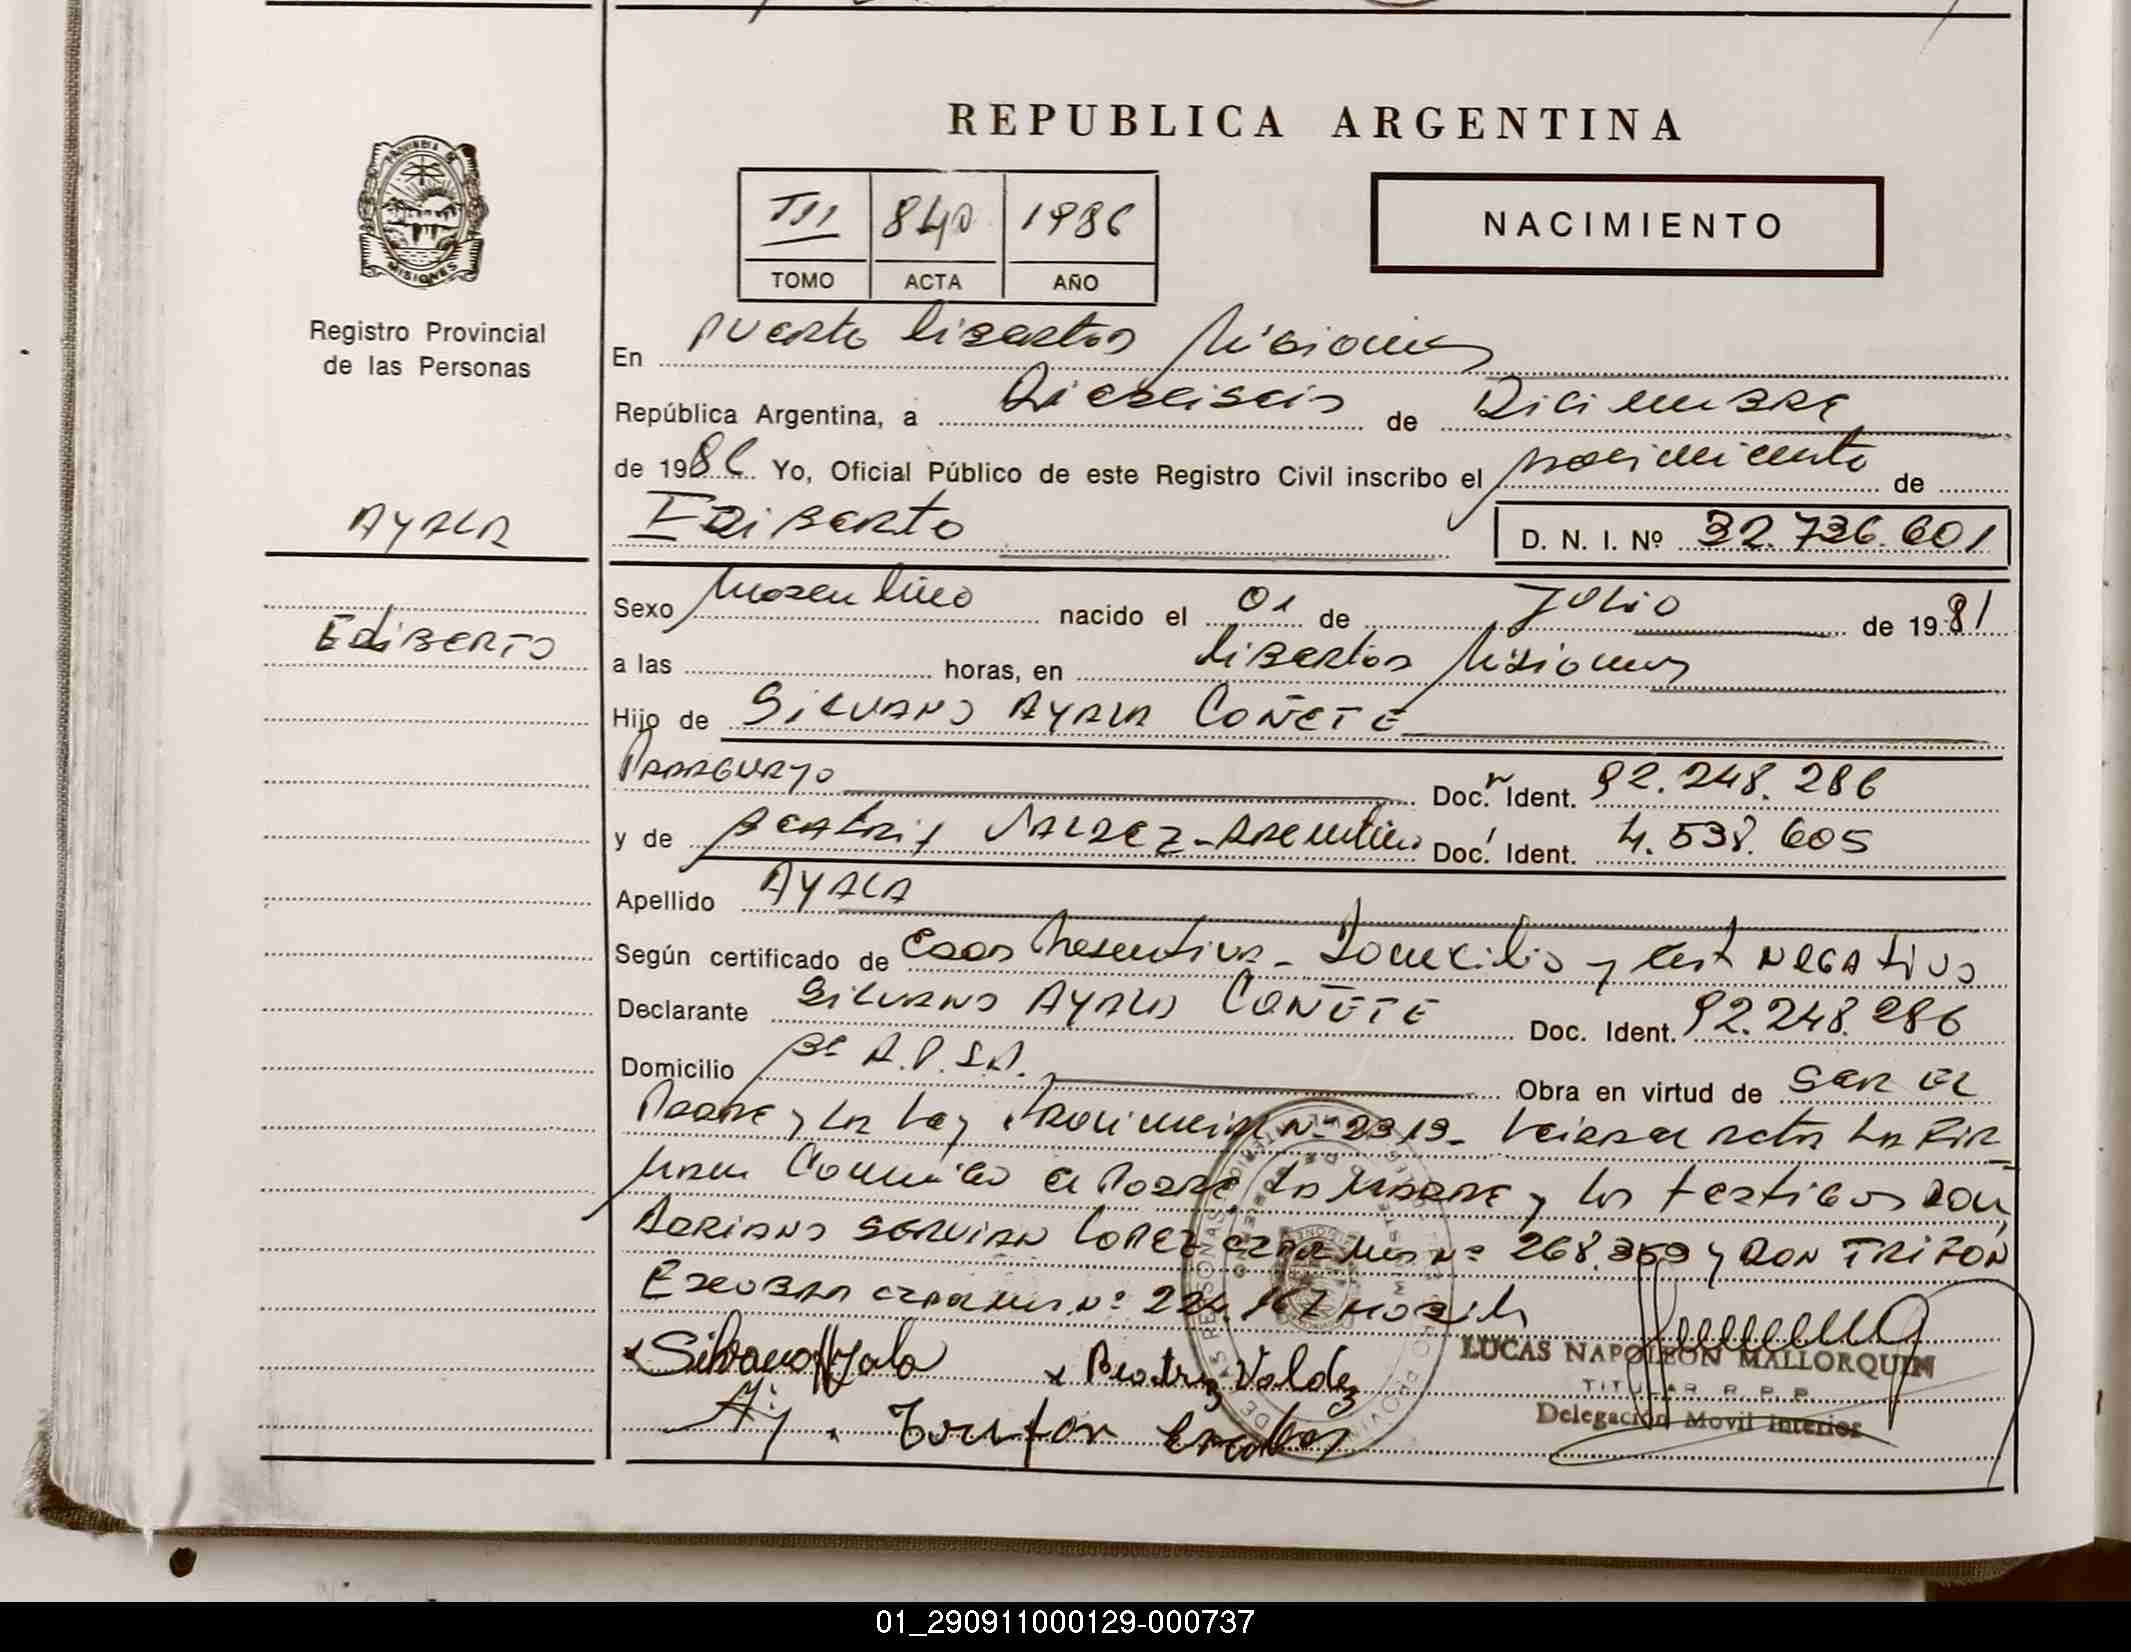 REPUBLICA ARGENTINA
PROVINCIA DE
MISIONES
Registro Provincial
de las Personas
TIII 840 1986
TOMO ACTA AÑO
NACIMIENTO
En Puerto Libertad Misiones
República Argentina, a Dieciseis de Diciembre
de 1986 Yo, Oficial Público de este Registro Civil inscribo el nacimiento de
AYALA
Ediberto D. N. I. Nº 32.736.601
Sexo Masculino nacido el 01 de Julio de 1981
Ediberto
a las horas, en Libertad Misiones
Hijo de Silvano Ayala Cañete
Paraguayo Doc. Ident. 92.248.286
y de Beatriz Valdez - Argentina Doc. Ident. 4.538.605
Apellido AYALA
Según certificado de Edad Presuntiva - Domicilio y cert Negativo
Declarante Silvano Ayala Cañete Doc. Ident. 92.248.286
Domicilio Bº A.P.S.A. Obra en virtud de ser el
Padre y la Ley Provincial Nº 2319 - Leida el acta la fir-
man conmigo el Padre, la Madre y los testigos Don
Adriano Servian Lopez Nº 268.359 y Don Trifon
Escobar Nº 224.167
x Silvano Ayala x Beatriz Valdez
Trifon Escobar
LUCAS NAPOLEON MALLORQUIN
TITULAR R. P. P.
Delegación Movil Interior
01_290911000129-000737